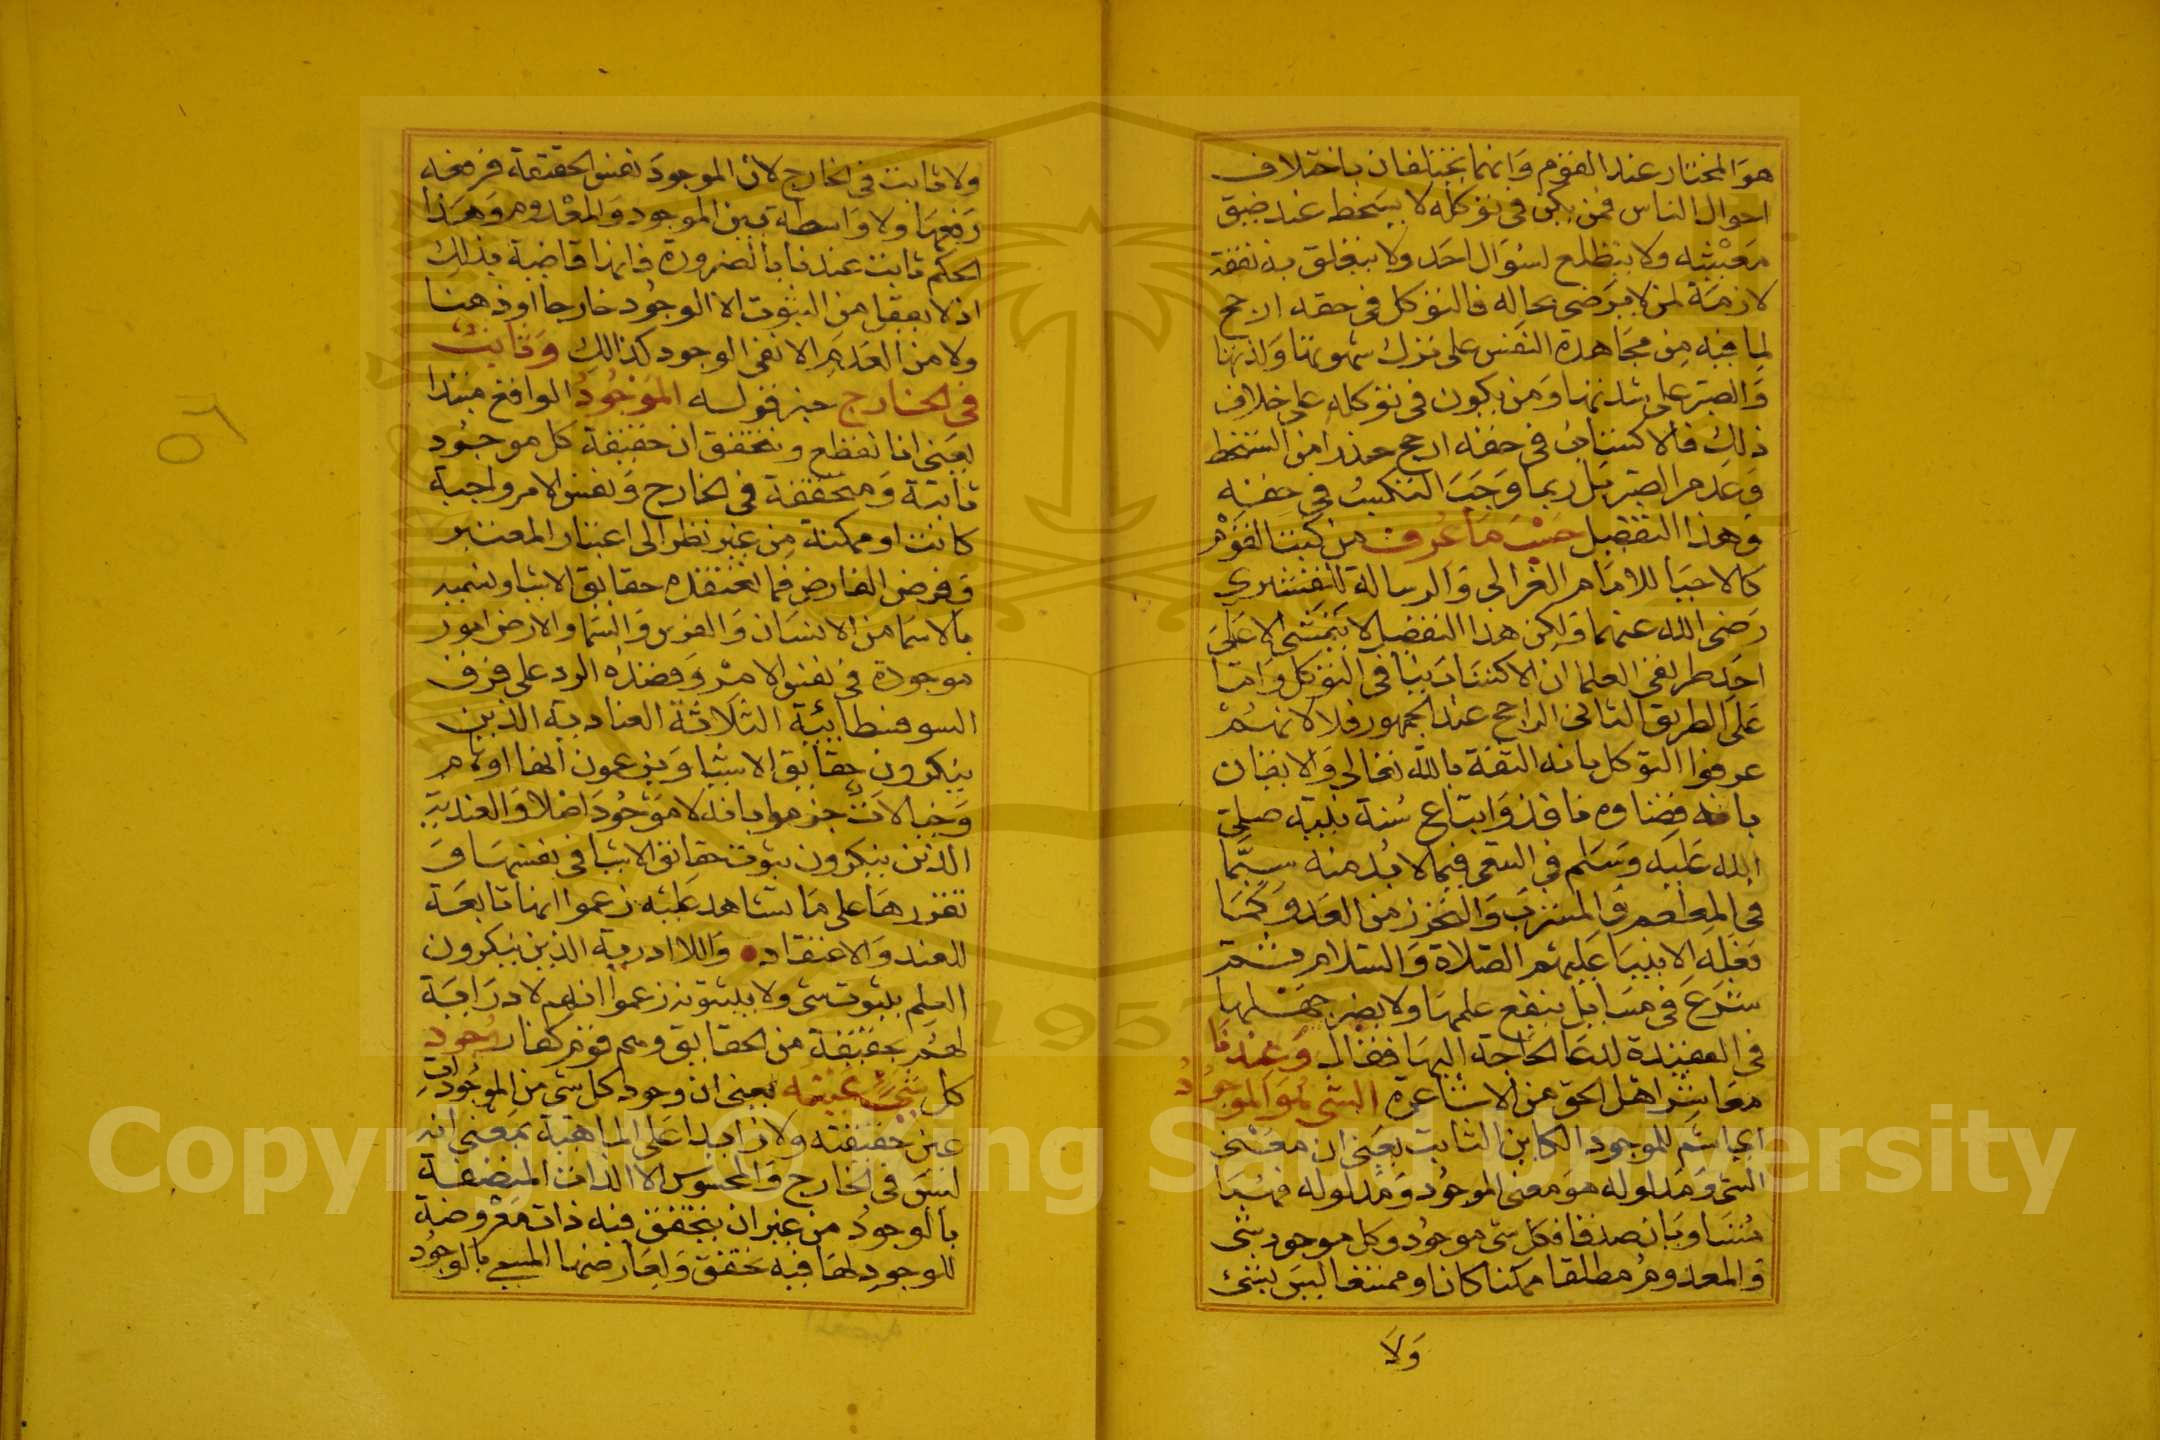 هو المختار عند القوم وانهما يختلفان باختلاف
احوال الناس فمن يكن في توكله لا يسخط عند ضيق
معيشه ولا يتطلع لسؤال احد ولا يتعلق به نفقة
لازمة لمن لا يرضى بحاله فالتوكل في حقه ارجح
لما فيه من مجاهدة النفس على ترك شهوتها ولذتها
والصبر على شدتها ومن يكون في توكله على خلاف
ذلك فالاكتساب في حقه ارجح حذرا من السخط
وعدم الصبر بل ربما وجب التكسب في حقه
وهذا التفصيل حسب ما عرف من كتب القوم
كالاحيا للامام الغزالي والرسالة للقشيري
رضى الله عنهما ولكن هذا التفضيل لا يتمشى الا على
احد طريقي العلما ان الاكتساب ينافي التوكل واما
على الطريق الثاني الراجح عند الجمهور فلا لانهم
عرفوا التوكل بانه الثقة بالله تعالى والايقان
بانه قضاوه نافذ واتباع سنة نبيه صلى
الله عليه وسلم في السعي فيما لا بد منه سيما
في المطعم والمشرب والتحرز من العدو كما
فعله الانبيا عليهم الصلاة والسلام ثم
شرع في مسايل ينفع علمها ولا يضر جهلها
في العقيدة لدعا الحاجة اليها فقال وعندنا
معاشر اهل الحق من الاشاعرة الشي هو الموجود
اي اسم للموجود الكاين الثابت يعني ان معنى
الشي ومدلوله هو معنى الموجود ومدلوله فهما
متساويان صدقا فكل شي موجود وكل موجود شي
والمعدوم مطلقا ممكنا كان او ممتنعا ليس بشي
ولا
ولا ثابت في الخارج لان الموجود نفس الحقيقة فرفعه
رفعها ولا واسطة بين الموجود والمعدوم وهذا
الحكم ثابت عندنا بالضرورة فانها قاضية بذلك
اذ لا يعقل من الثبوت الا الوجود خارجا او ذهنا
ولا من العدم الا نفي الوجود كذلك وثابت
في الخارج خبر قوله الموجود الواقع مبتدا
يعني انا نقطع ونتحقق ان حقيقة كل موجود
ثابتة ومتحققة في الخارج ونفس الامر واجبة
كانت او ممكنة من غير نظر الى اعتبار المعتبر
وفرض الفارض فما نعتقده حقايق الاشيا ونسميه
بالاسما من الانسان والفرس والسما والارض امور
موجودة في نفس الامر وقصده الرد على فرق
السوفسطايية الثلاثة العنادية الذين
ينكرون حقايق الاشيا ويزعمون انها اوهام
وخيالات جزموا بانه لا موجود اصلا والعندية
الذين ينكرون ثبوت حقايق الاشيا في نفسها و
تقررها على ما تشاهد عليه زعموا انها تابعة
للعند والاعتقاد واللاادرية الذين ينكرون
العلم بثبوت شي ولا بثبوته زعموا انهم لا دراية
لهم بحقيقة من الحقايق وهم قوم كفار وجود
كل شي عينه يعني ان وجود كل شي من الموجودات
عين حقيقته ولا زايدا على الماهية بمعنى انه
ليس في الخارج والمحسوس الا الذات المتصفة
بالوجود من غير ان يتحقق فيه ذات معروضة
للوجود لها فيه تحقق ولعارضها المسمى بالوجود